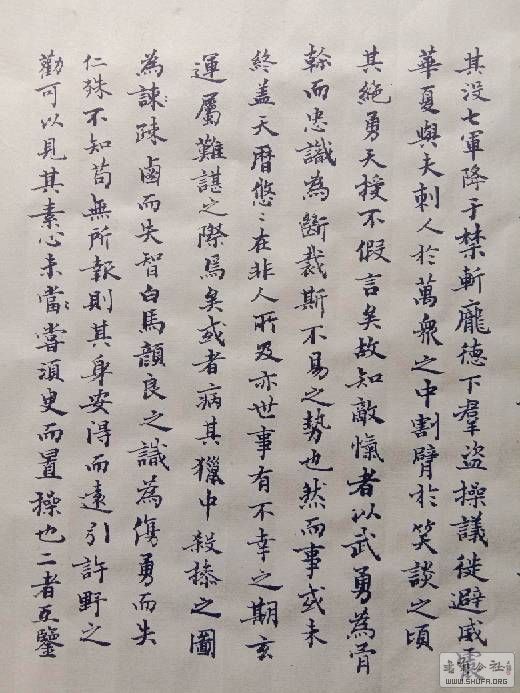 其没七軍降于禁斬龐德下羣盜操議徙避威震
華夏與夫刺人於萬衆之中割臂於笑談之頃
其絶勇天授不假言矣故知敵愾者以武勇為骨
幹而忠識為斷裁斯不易之勢也然而事或未
終盖天曆悠〻在非人所及亦世事有不幸之期玄
運屬難諶之際焉矣或者病其獵中殺操之圖
為諫疎鹵而失智白馬顔良之識為傷勇而失
仁殊不知苟無所報則其身安得而遠引許野之
勸可以見其素心未當嘗須臾而置操也二者互鑒
书法公社
WWW.SHUFA.ORG